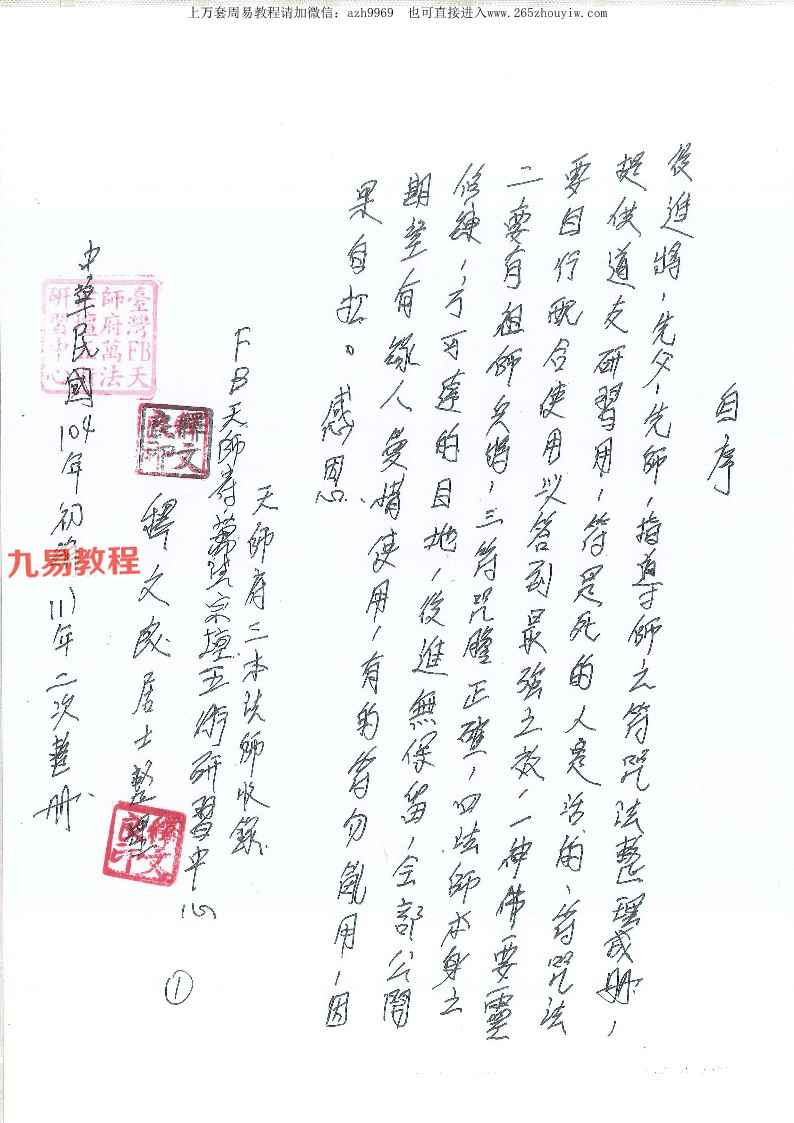 上万套周易教程请加微信：azh9969　也可直接进入www.265zhouyiw.com
自序
後進將，先父，先師，指導于師之符咒法整理成册，
提供道友研習用，符是死的人是活的，符咒法
要自行配合使用以答到最強之效，一神佛要靈
二要有祖師兵將，三符咒膽正確，四法師本身之
修練，方可達的目地，後進無保留，全部公開
期望有緣人愛惜使用，有的符勿亂用，因
果自担。感恩
天師府三本法師收錄
FB天師府萬法宗壇五術研習中心
釋文良居士整理
中華民國104年初 111年二次整册
臺灣FB天
師府萬法
研習中心
釋文
良印
釋文
良印
九易教程
①